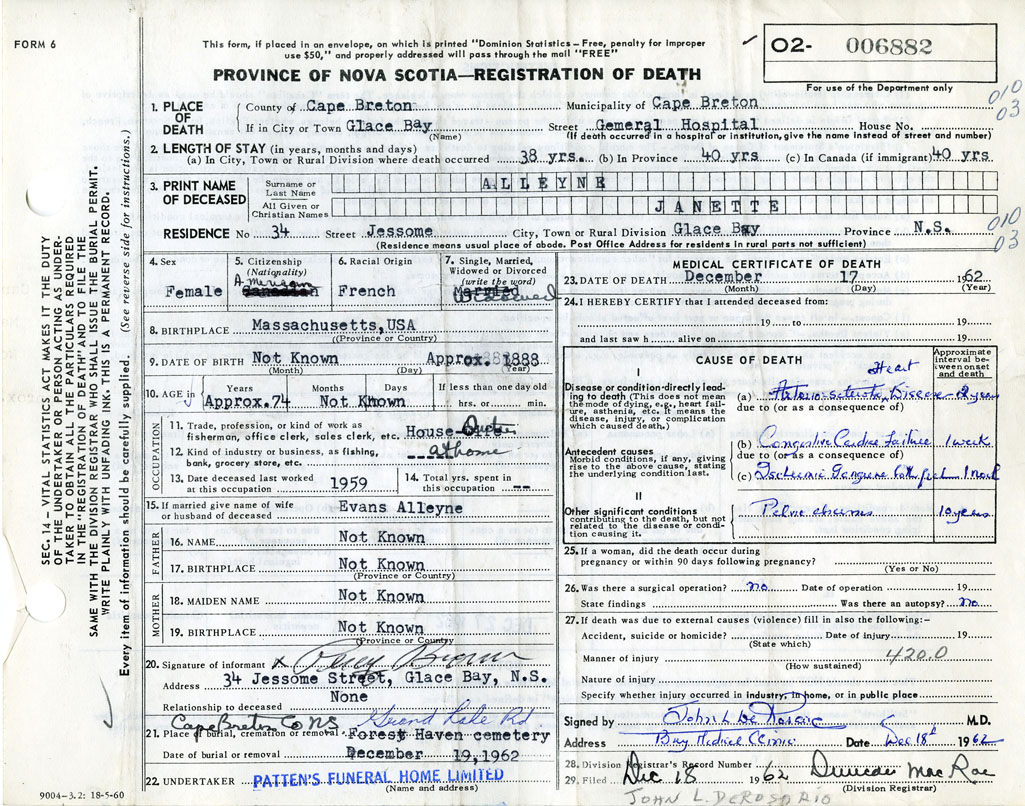 FORM 6
This form, if placed in an envelope, on which is printed "Dominion Statistics – Free, penalty for improper
use $50," and properly addressed will pass through the mail "FREE"
O2- 006882
For use of the Department only
PROVINCE OF NOVA SCOTIA—REGISTRATION OF DEATH
010
03
1. PLACE OF DEATH
County of Cape Breton Municipality of Cape Breton
If in City or Town Glace Bay Street Gemeral Hospital House No.
(Name) (If death occurred in a hospital or institution, give the name instead of street and number)
2. LENGTH OF STAY (in years, months and days)
(a) In City, Town or Rural Division where death occurred 38 yrs. (b) In Province 40 yrs (c) In Canada (if immigrant) 40 yrs.
3. PRINT NAME OF DECEASED
Surname or Last Name ALLEYNE
All Given or Christian Names JANETTE
010
03
RESIDENCE No 34 Street Jessome City, Town or Rural Division Glace Bay Province N.S.
(Residence means usual place of abode. Post Office Address for residents in rural parts not sufficient)
SEC. 14 – VITAL STATISTICS ACT MAKES IT THE DUTY
OF THE UNDERTAKER OR PERSON ACTING AS UNDER-
TAKER TO OBTAIN THE PARTICULARS REQUIRED
IN THE "REGISTRATION OF DEATH" AND TO FILE THE
SAME WITH THE DIVISION REGISTRAR WHO SHALL ISSUE THE BURIAL PERMIT.
WRITE PLAINLY WITH UNFADING INK. THIS IS A PERMANENT RECORD.
Every item of information should be carefully supplied. (See reverse side for instructions.)
4. Sex
Female
5. Citizenship
(Nationality)
American
Canadian
6. Racial Origin
French
7. Single, Married,
Widowed or Divorced
(write the word)
Married
Widowed
8. BIRTHPLACE Massachusetts,USA
(Province or Country)
9. DATE OF BIRTH Not Known Approx. 1888
(Month) (Day) (Year)
10. AGE in
Years Months Days If less than one day old
Approx.74 Not Known hrs. or min.
OCCUPATION
11. Trade, profession, or kind of work as
fisherman, office clerk, sales clerk, etc. House Duties
12. Kind of industry or business, as fishing,
bank, grocery store, etc. at home
13. Date deceased last worked
at this occupation 1959
14. Total yrs. spent in
this occupation --
15. If married give name of wife
or husband of deceased Evans Alleyne
FATHER
16. NAME Not Known
17. BIRTHPLACE Not Known
(Province or Country)
MOTHER
18. MAIDEN NAME Not Known
19. BIRTHPLACE Not Known
(Province or Country)
20. Signature of informant x Percy Brown
Address 34 Jessome Street, Glace Bay, N.S.
Relationship to deceased None
Cape Breton Co NS Grand Lake Rd
21. Place of burial, cremation or removal Forest Haven cemetery
Date of burial or removal December 19,1962
22. UNDERTAKER PATTEN'S FUNERAL HOME LIMITED
(Name and address)
9004-3.2: 18-5-60
MEDICAL CERTIFICATE OF DEATH
23. DATE OF DEATH December 17 1962
(Month) (Day) (Year)
24. I HEREBY CERTIFY that I attended deceased from:
19 to 19
and last saw h alive on 19
CAUSE OF DEATH
Approximate
interval be-
tween onset
and death
I
Disease or condition directly lead-
ing to death (This does not mean
the mode of dying, eg., heart fail-
ure, asthenia, etc. It means the
disease, injury, or complication
which caused death.)
Heart
(a) Arteriosclerotic Disease 2 years
due to (or as a consequence of)
Antecedent causes
Morbid conditions, if any, giving
rise to the above cause, stating
the underlying condition last.
(b) Congestive Cardiac Failure 1 week
due to (or as a consequence of)
(c) Ischemic Gangrene both feet 1
II
Other significant conditions
contributing to the death, but not
related to the disease or condi-
tion causing it.
10 years
25. If a woman, did the death occur during
pregnancy or within 90 days following pregnancy?
(Yes or No)
26. Was there a surgical operation? no Date of operation 19
State findings Was there an autopsy? no
27. If death was due to external causes (violence) fill in also the following:-
Accident, suicide or homicide? Date of injury 19
(State which)
Manner of injury 420.0
(How sustained)
Nature of injury
Specify whether injury occurred in industry, in home, or in public place
Signed by John L De Rosario M.D.
Address Bay Medical Clinic Date Dec 18th 1962
28. Division Registrar's Record Number
29. Filed Dec 18 1962 Duncan MacRae
(Division Registrar)
JOHN L. DEROSARIO